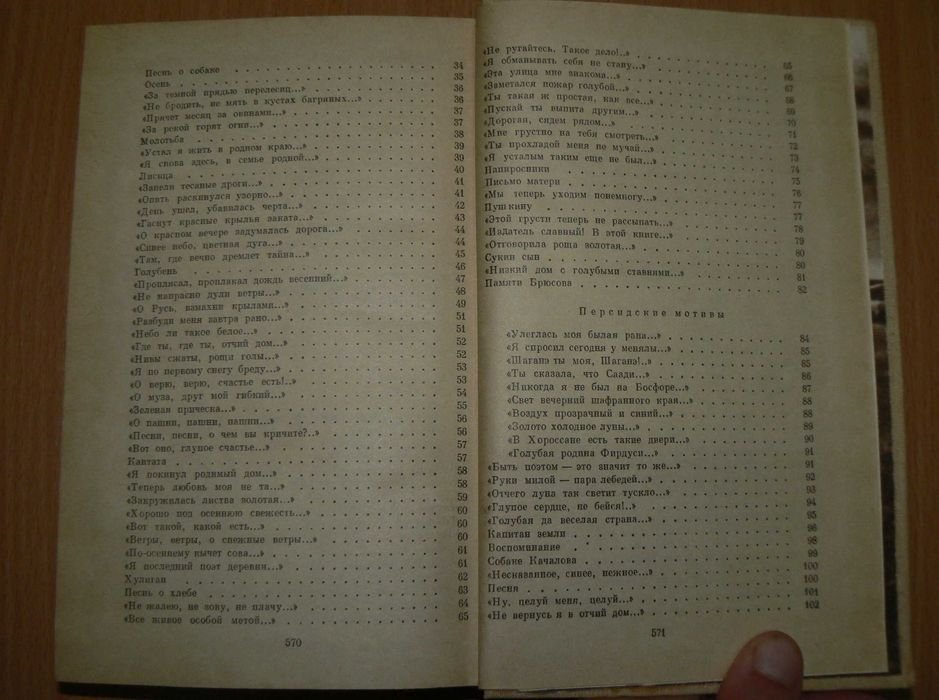 Песнь о собаке 34
Осень 35
«За темной прядью перелесиц...» 36
«Не бродить, не мять в кустах багряных...» 36
«Прячет месяц за овинами...» 37
«За рекой горят огни...» 37
Молотьба 38
«Устал я жить в родном краю...» 39
«Я снова здесь, в семье родной...» 39
Лисица 40
«Запели тесаные дроги...» 41
«Опять раскинулся узорно...» 41
«День ушел, убавилась черта...» 42
«Гаснут красные крылья заката...» 43
«О красном вечере задумалась дорога...» 44
«Синее небо, цветная дуга...» 44
«Там, где вечно дремлет тайна...» 45
Голубень 46
«Проплясал, проплакал дождь весенний...» 47
«Не напрасно дули ветры...» 48
«О Русь, взмахни крылами...» 49
«Разбуди меня завтра рано...» 51
«Небо ли такое белое...» 51
«Где ты, где ты, отчий дом...» 52
«Нивы сжаты, рощи голы...» 52
«Я по первому снегу бреду...» 53
«О верю, верю, счастье есть!..» 53
«О муза, друг мой гибкий...» 54
«Зеленая прическа...» 55
«О пашни, пашни, пашни...» 56
«Песни, песни, о чем вы кричите?..» 56
«Вот оно, глупое счастье...» 57
Кантата 57
«Я покинул родимый дом...» 58
«Теперь любовь моя не та...» 58
«Закружилась листва золотая...» 59
«Хорошо под осеннюю свежесть...» 60
«Вот такой, какой есть...» 60
«Ветры, ветры, о снежные ветры...» 60
«По-осеннему кычет сова...» 61
«Я последний поэт деревни...» 61
Хулиган 62
Песнь о хлебе 63
«Не жалею, не зову, не плачу...» 64
«Все живое особой метой...» 65
570
«Не ругайтесь. Такое дело!..» 65
«Я обманывать себя не стану...» 66
«Эта улица мне знакома...» 67
«Заметался пожар голубой...» 68
«Ты такая ж простая, как все...» 69
«Пускай ты выпита другим...» 70
«Дорогая, сядем рядом...» 71
«Мне грустно на тебя смотреть...» 72
«Ты прохладой меня не мучай...» 73
«Я усталым таким еще не был...» 74
Папиросники 75
Письмо матери 76
«Мы теперь уходим понемногу...» 77
Пушкину 77
«Этой грусти теперь не рассыпать...» 78
«Издатель славный! В этой книге...» 79
«Отговорила роща золотая...» 80
Сукин сын 80
«Низкий дом с голубыми ставнями...» 81
Памяти Брюсова 82
Персидские мотивы
«Улеглась моя былая рана...» 84
«Я спросил сегодня у менялы...» 85
«Шаганэ ты моя, Шаганэ!..» 85
«Ты сказала, что Саади...» 86
«Никогда я не был на Босфоре...» 87
«Свет вечерний шафранного края...» 88
«Воздух прозрачный и синий...» 88
«Золото холодное луны...» 89
«В Хороссане есть такие двери...» 90
«Голубая родина Фирдуси...» 91
«Быть поэтом — это значит то же...» 91
«Руки милой — пара лебедей...» 92
«Отчего луна так светит тускло...» 93
«Глупое сердце, не бейся!..» 94
«Голубая да веселая страна...» 95
Капитан земли 96
Воспоминание 98
Собаке Качалова 99
«Несказанное, синее, нежное...» 100
Песня 100
«Ну, целуй меня, целуй...» 101
«Не вернусь я в отчий дом...» 102
571